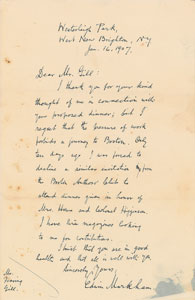 Westerleigh Park,
West New Brighton, N.Y.
Jan. 16, 1907.
Dear Mr. Gill:
I thank you for your kind
thought of me in connection with
your proposed dinner; but I
regret that the pressure of work
forbids a journey to Boston. Only
two days ago I was forced to
decline a similar invitation from
the Boston Authors' Club to
attend dinner given in honor of
Mrs. Howe and Colonel Higginson.
I have five magazines looking
to me for contributions.
I trust that you are in good
health and that all is well with you.
Sincerely Yours,
Edwin Markham
Mr.
Gill.